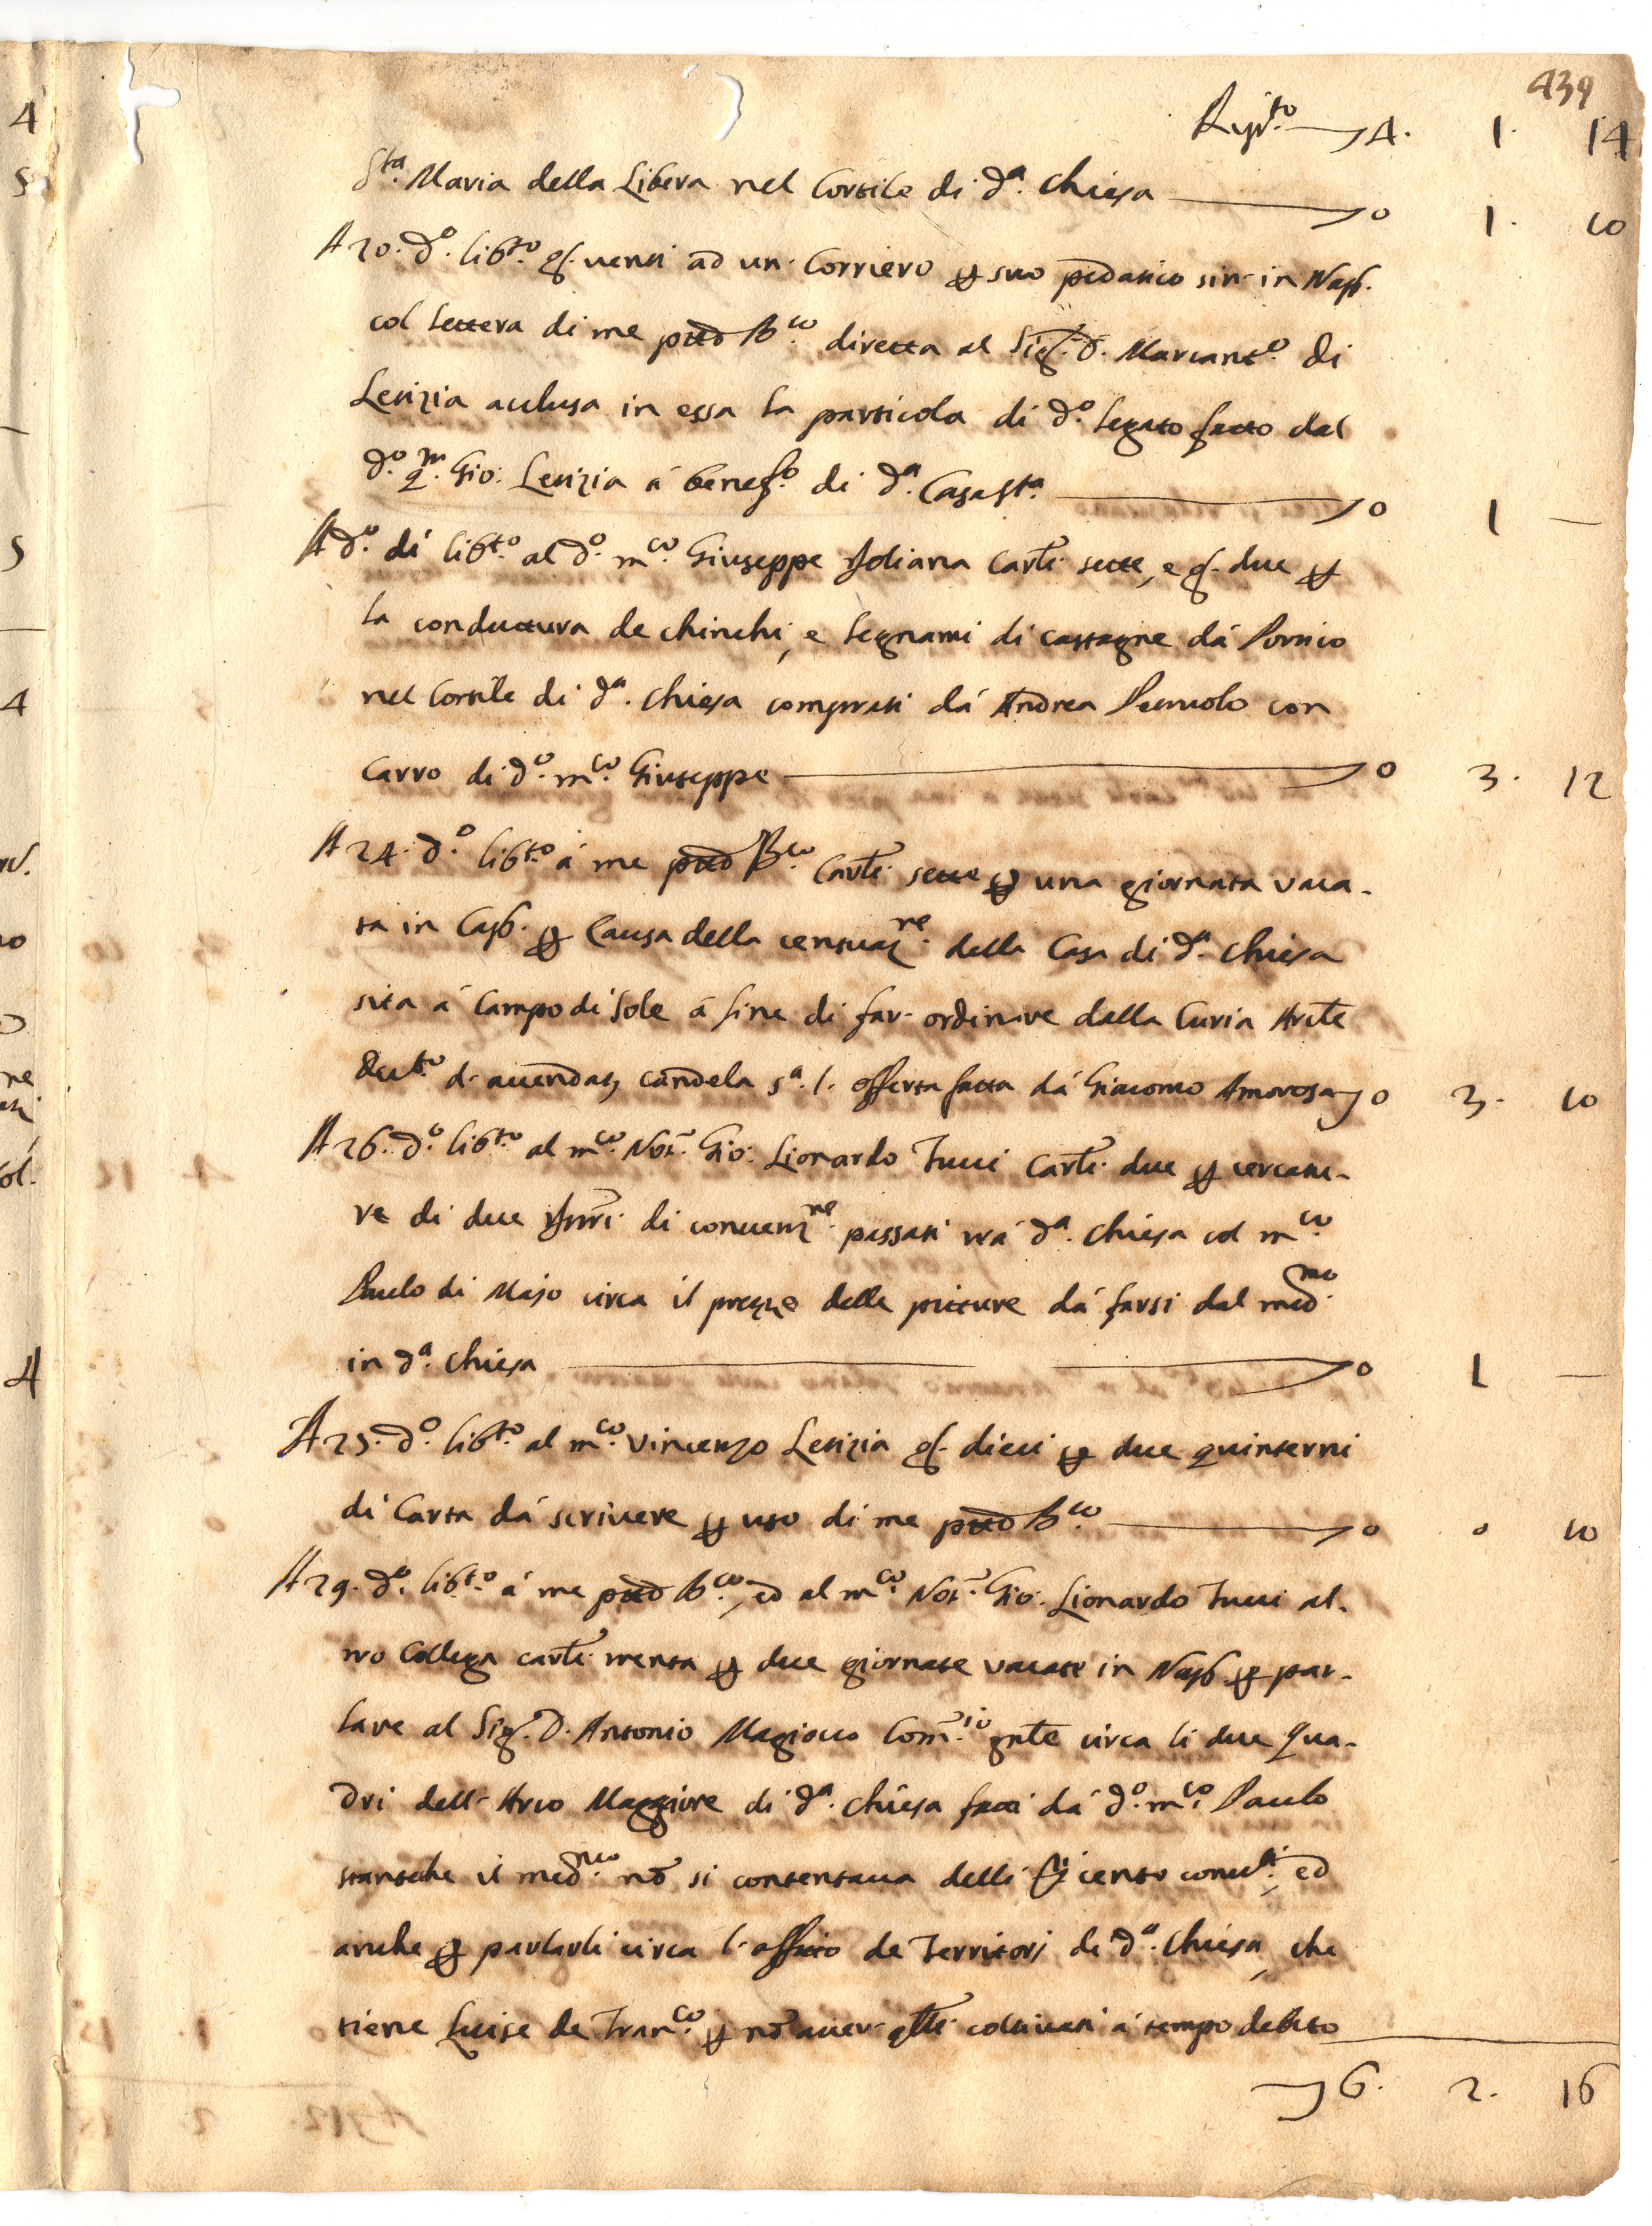 439
Rip.to 4. 1. 14
S.ta Maria della Libera nel Cortile di d.a Chiesa 0 1. 10
A 20. d.o lib.to g.a venti ad un Corriero p suo pedatico sin in Nap.
col lettera di me ptto B.co diretta al Sig. D. Marcant.o di
Letizia acclusa in essa la particola di d.o legato fatto dal
d.o q.m Gio: Letizia à benef.o di d.a Casa S.ta 0 1 —
A d.o dì lib.to al d.o m.co Giuseppe Joliana Carl. sette, e g. due p
la conduttura de chirchi, e legnami di castagne dà Portico
nel Cortile di d.a Chiesa comprati dà Andrea con
Carro di d.o m.co Giuseppe 0 3. 12
A 24. d.o lib.to à me ptto B.co Carl. sette p una giornata vaca-
ta in Cap. p Causa della censuaz.ne della Casa di d.a Chiesa
sita à Campo di Sole à fine di far ordinare dalla Curia
candela s.a l. offerta fatta dà Giacomo Amorosa 0 3. 10
A 26. d.o lib.to al m.co Not. Gio: Lionardo Tucci Carl. due p
re di due di convenz.ne passati trà d.a Chiesa col m.co
Paulo di Majo circa il prezzo delle pitture dà farsi dal med.mo
in d.a Chiesa 0 1 —
A 25. d.o lib.to al m.co Vincenzo Letizia g. dieci p due quinterni
di Carta dà scrivere p uso di me ptto B.co 0 0 10
A 29. d.o lib.to à me ptto B.co, ed al m.co Not. Gio: Lionardo Tucci al-
tro Collega carl. trenta p due giornate vacate in Nap. p par-
lare al Sig. D. Antonio Magiocco Com.rio gnle circa li due Qua-
dri dell'Arco Maggiore di d.a Chiesa fatti dà d.o m.co Paulo
stantche il med.mo nõ si contentava delli d.ti cento conv.ti, ed
anche p parlarli circa l'affitto de Territorj di d.a Chiesa, che
tiene Luise de Fran.co p nõ aver qlli coltivati à tempo debito
6. 2. 16